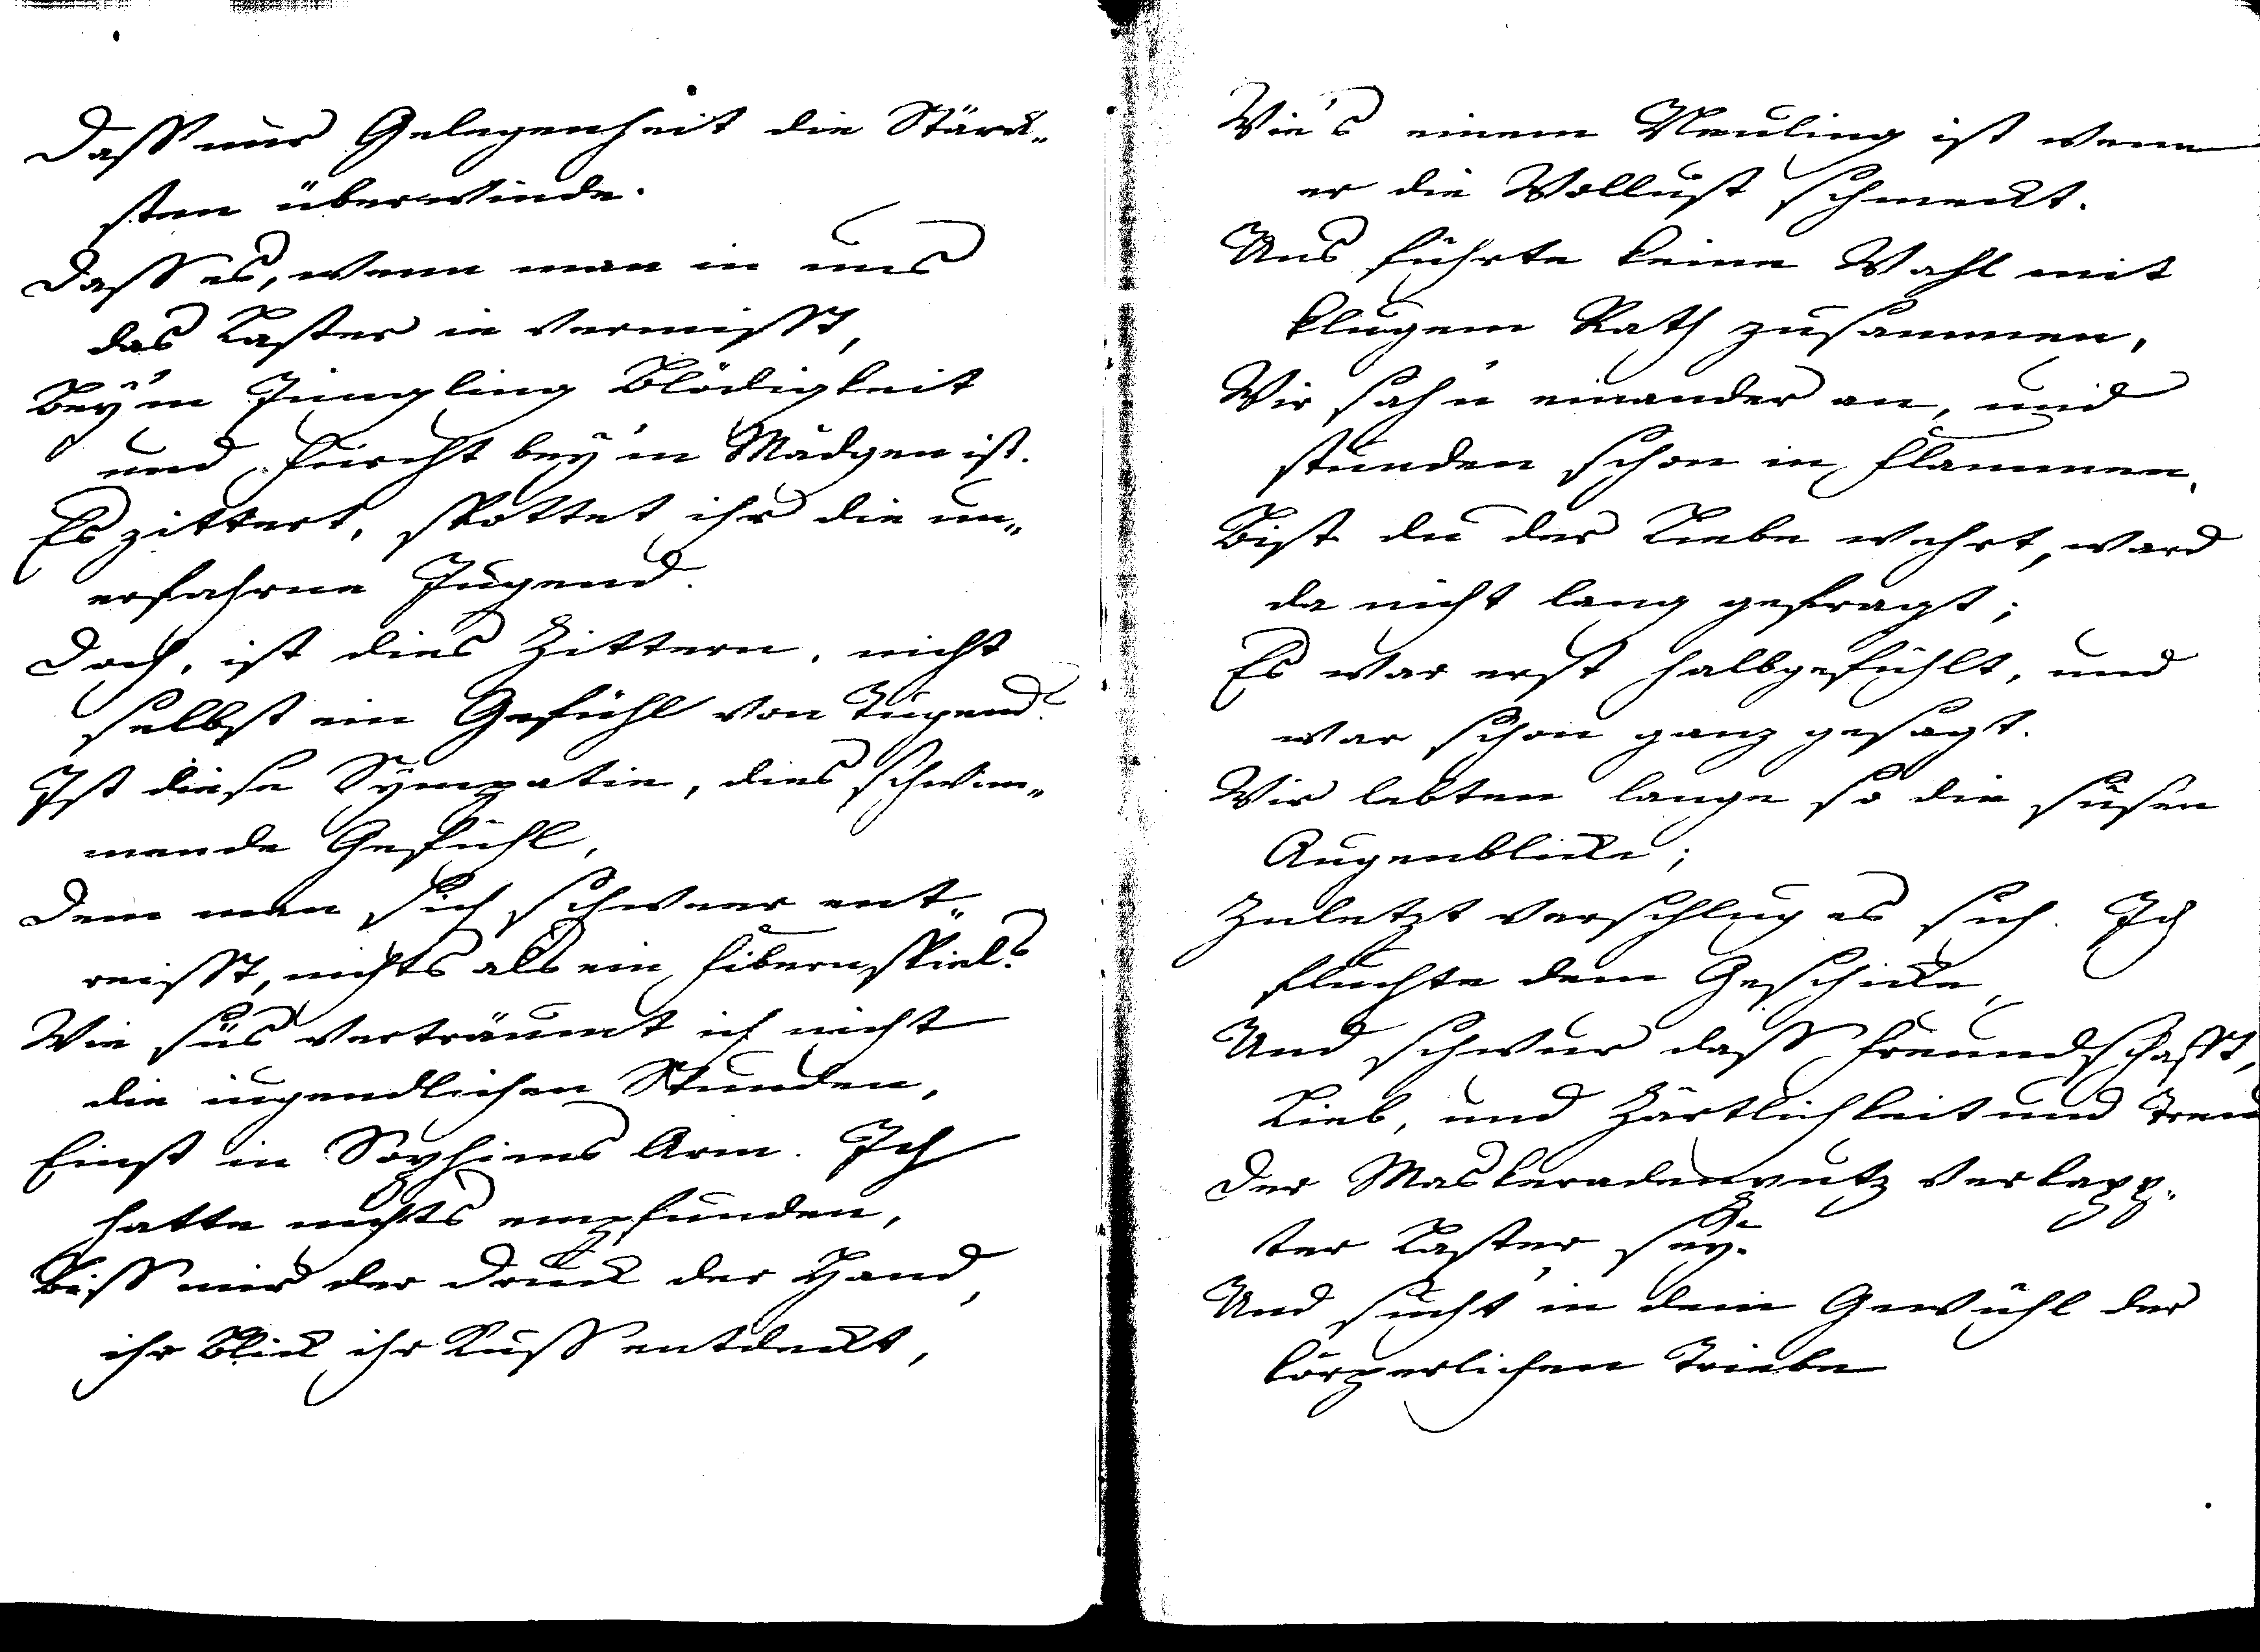 Dass nur Gelegenheit die Stärck„
sten überwinde.
Dass es, wenn man in uns
das Laster ie vermisst,
Bey'm Jüngling Blödigkeit
und Furcht bey'm Mädgen ist.
Es zittert, spottet ihr die un„
erfahrne Jugend.
Doch, ist dies Zittern, nicht
selbst ein Gefühl von Tugend?
Ist diese Sympatie, dies schwim„
mende Gefühl,
Dem man sich schweer ent„
reisst, nichts als ein Fibernspiel?
Wie süs verträumt ich nicht
die iugendlichen Stunden,
Einst in Sophiens Arm. Ich
hatte nichts empfunden,
Biss mir der Druck der Hand,
ihr Blick ihr Kuss entdeckt,
Wie's einem Neuling ist wenn
er die Wollust schmeckt.
Uns führte keine Wahl mit
klugem Rath zusammen,
Wir sah'n einander an, und
stunden schon in Flammen,
Bist du der Liebe wehrt, ward
da nicht lang gefragt;
Es war erst halbgefühlt, und
war schon ganz gesagt.
Wir lebten lange so die süsen
Augenblicke;
Zuletzt verschlug es sich. Ich
fluchte dem Geschicke,
Und schwur dass Freundschafft,
Lieb, und Zärtlichkeit und Treu
Der Maskeradenputz verkapp„
ter Laster sey.
Und sucht' in dem Gewühl der
körperlichen Triebe